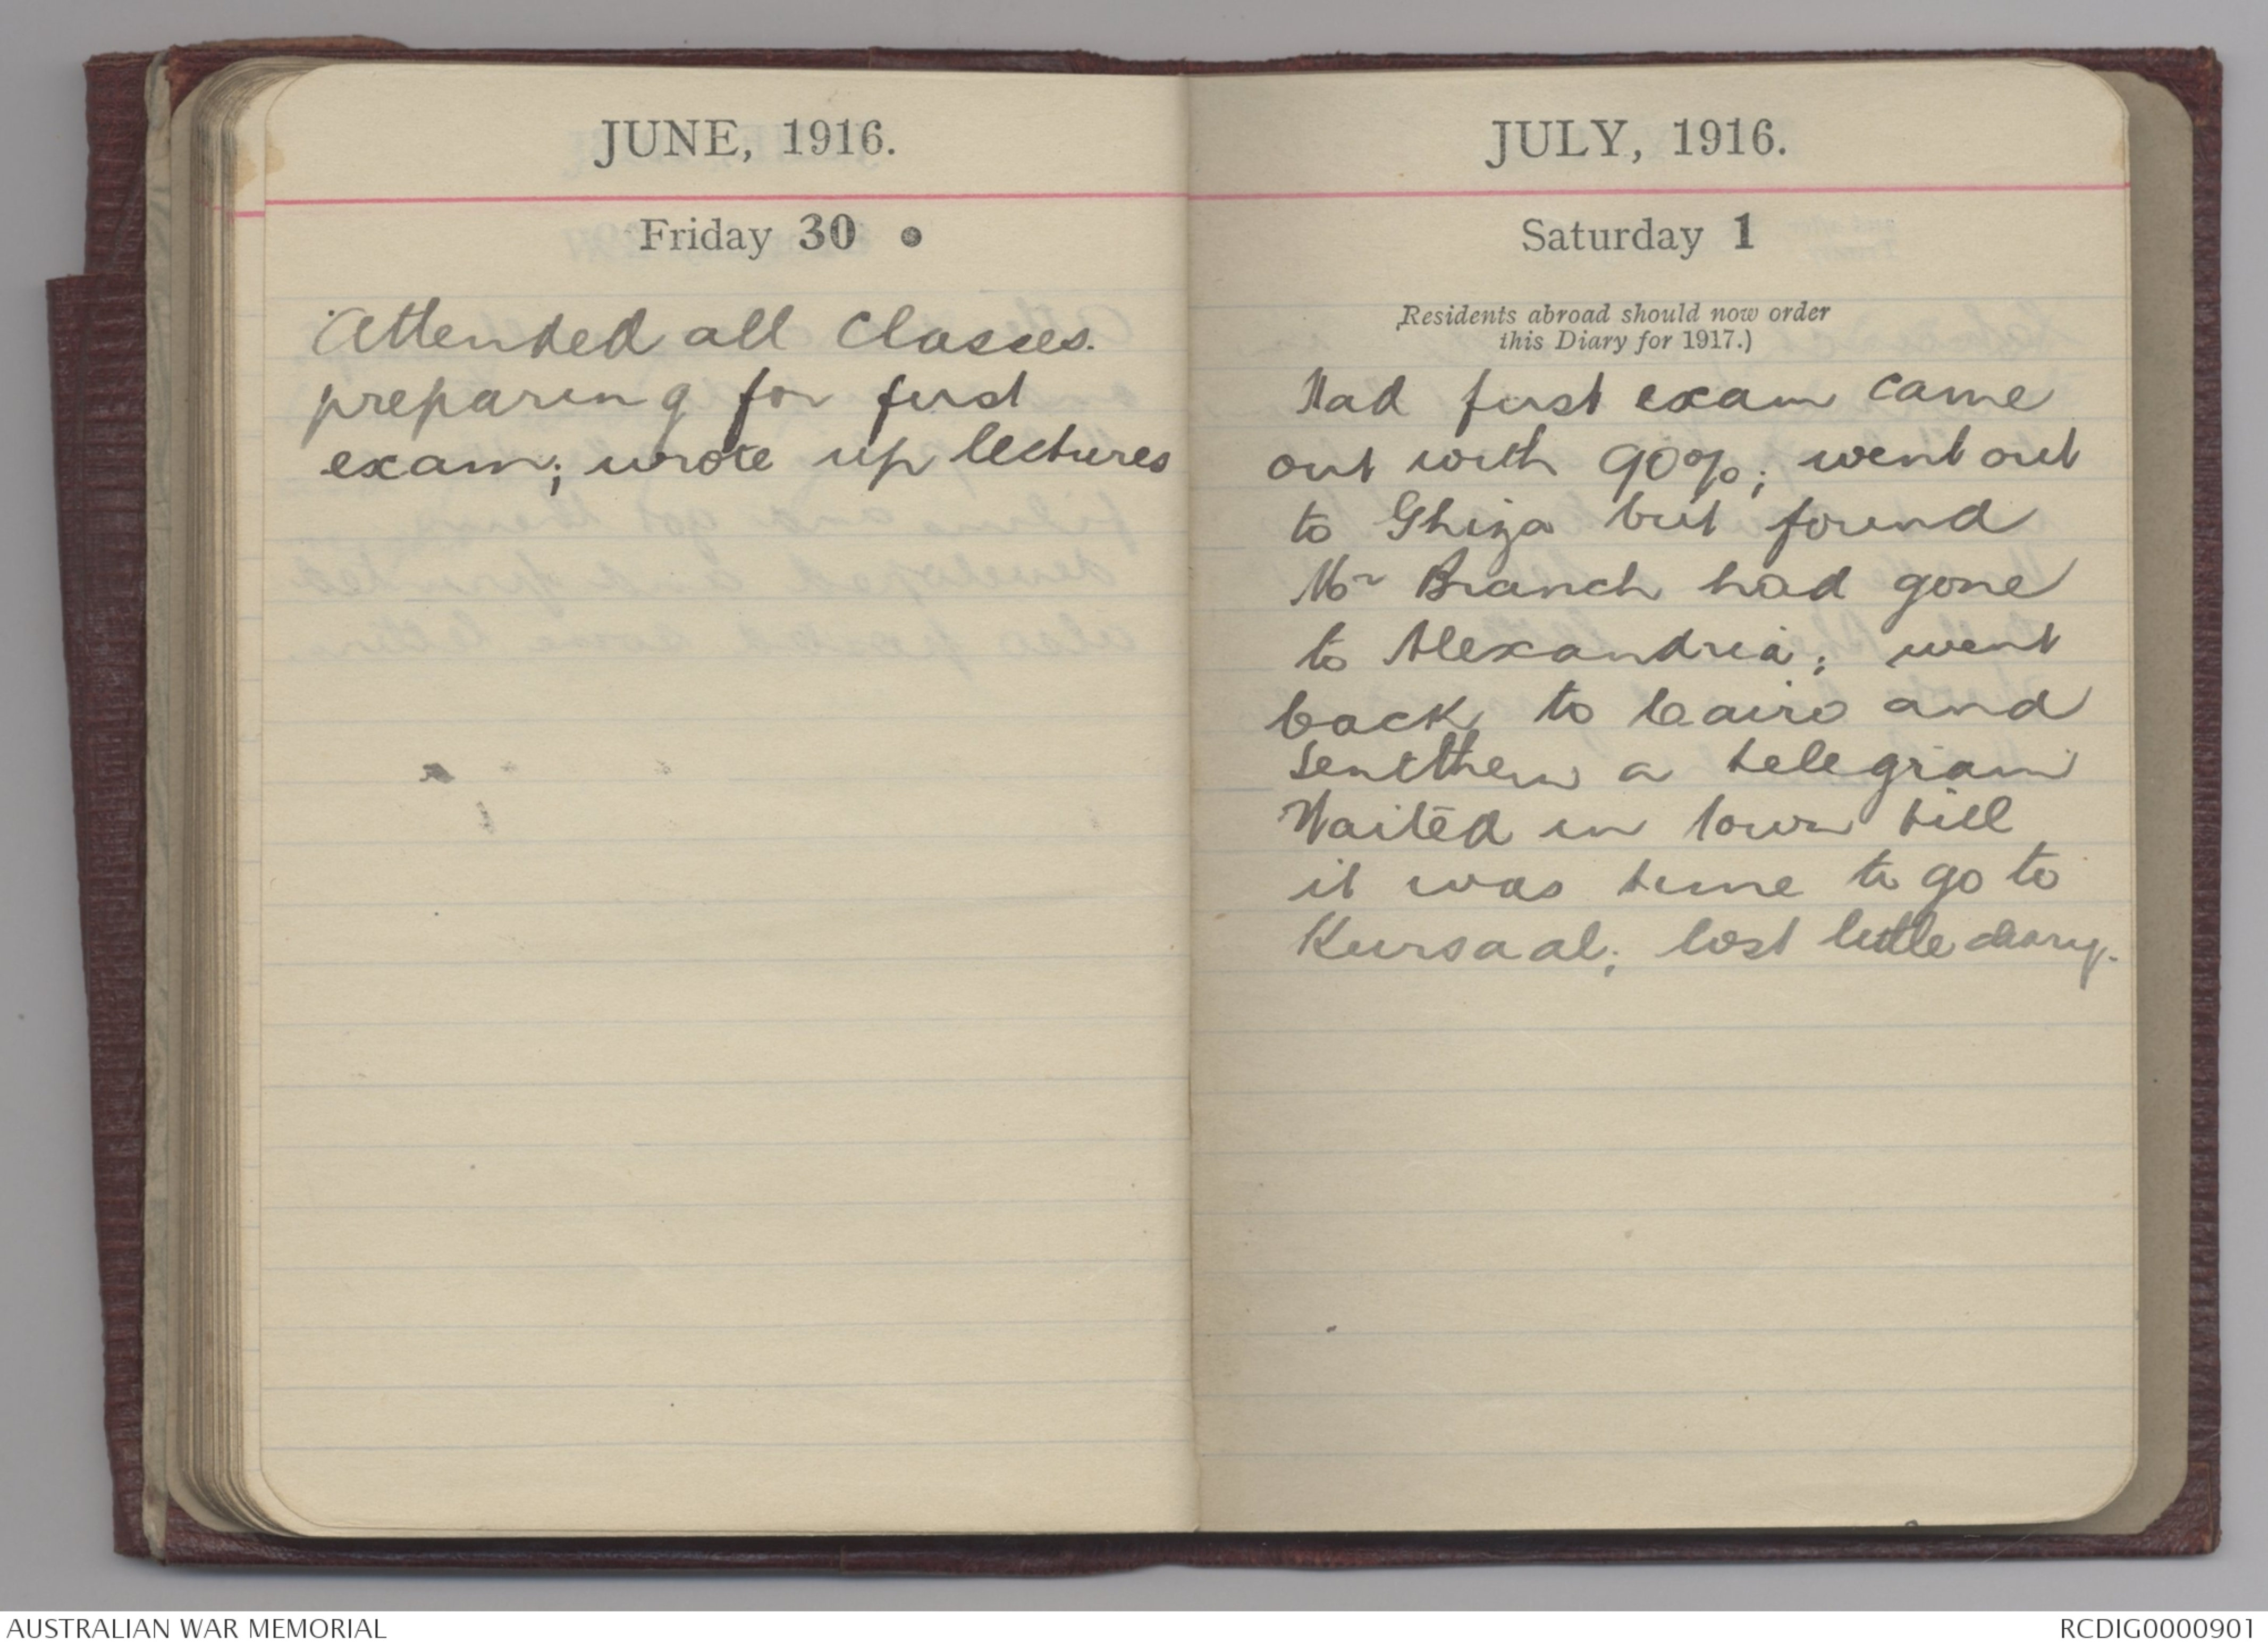 JUNE, 1916.
Friday 30
Attended all classes.
preparing for first
exam; wrote up lectures
JULY, 1916.
Saturday 1
Residents abroad should now order
this Diary for 1917.)
Had first exam came
out with 90%; went out
to Ghiza but found
Mr Branch had gone
to Alexandria; went
back to Cairo and
sent them a telegram
Waited in town till
it was time to go to
Kursaal; lost little diary.
AUSTRALIAN WAR MEMORIAL
RCDIG0000901